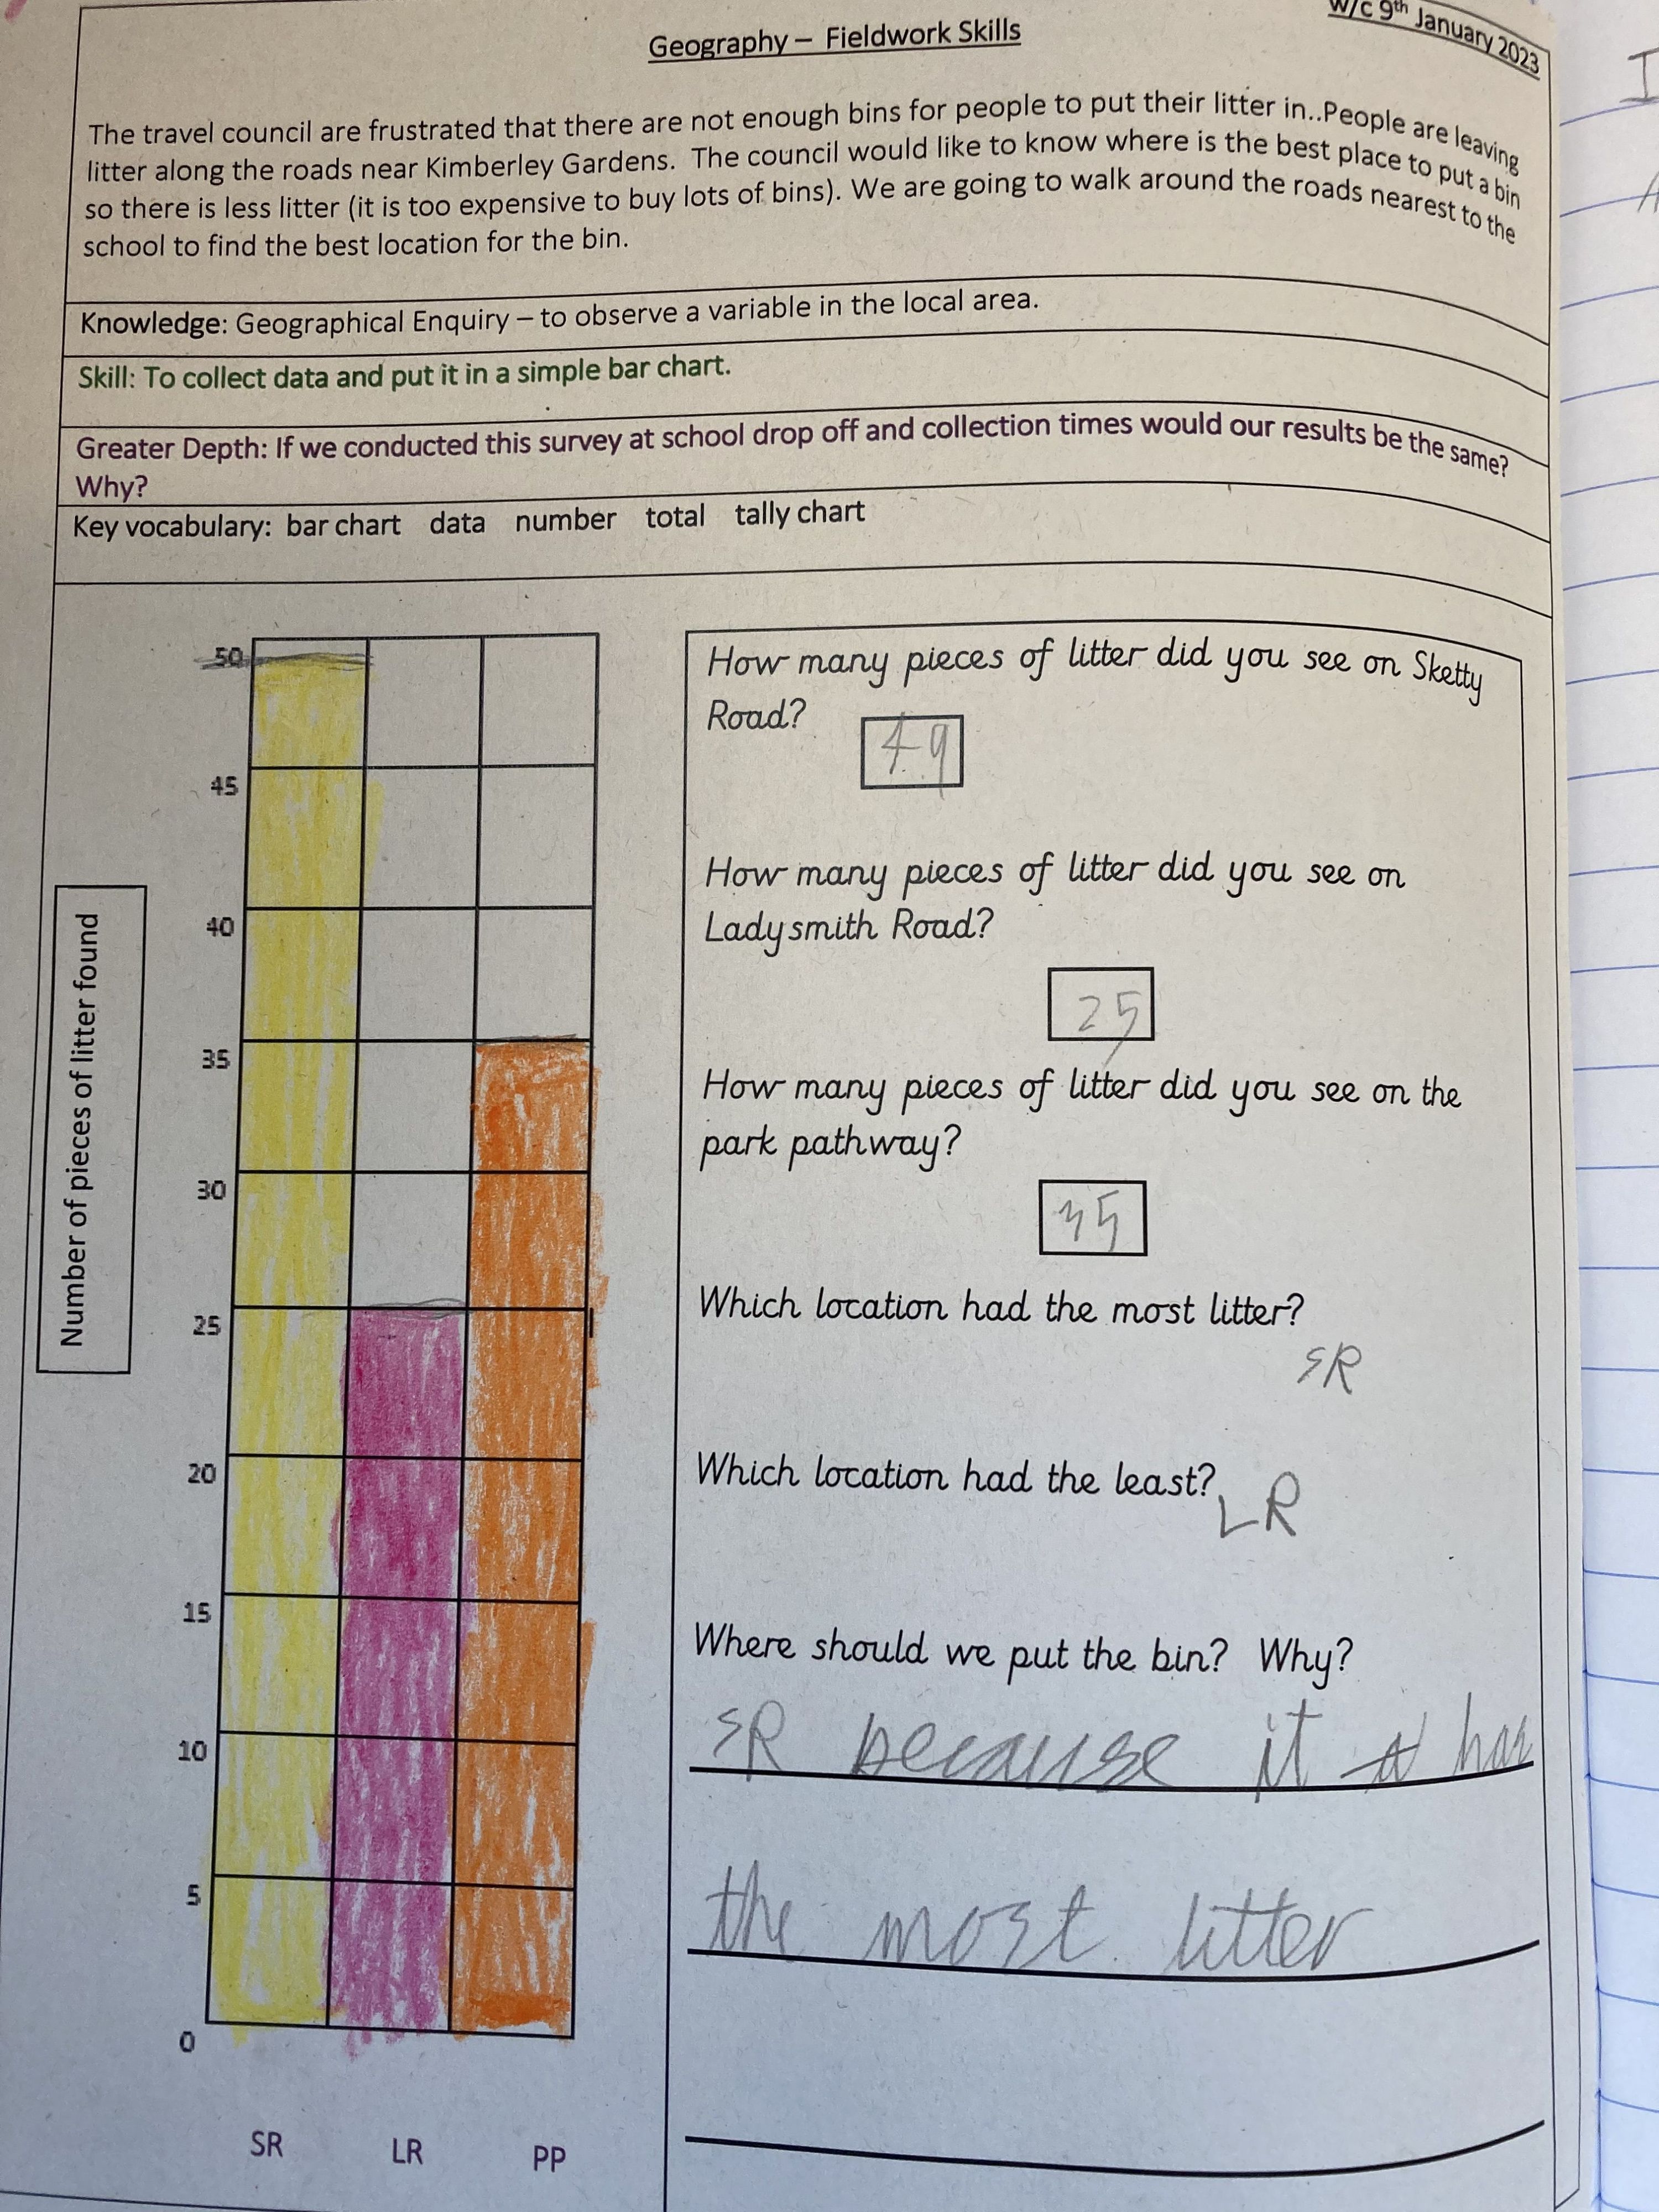 W/c 9th January 2023
Geography – Fieldwork Skills
The travel council are frustrated that there are not enough bins for people to put their litter in..People are leaving
litter along the roads near Kimberley Gardens. The council would like to know where is the best place to put a bin
so there is less litter (it is too expensive to buy lots of bins). We are going to walk around the roads nearest to the
school to find the best location for the bin.
Knowledge: Geographical Enquiry – to observe a variable in the local area.
Skill: To collect data and put it in a simple bar chart.
Greater Depth: If we conducted this survey at school drop off and collection times would our results be the same?
Why?
Key vocabulary: bar chart data number total tally chart
Number of pieces of litter found
50
45
40
35
30
25
20
15
10
5
0
SR LR PP
How many pieces of litter did you see on Sketty
Road?
49
How many pieces of litter did you see on
Ladysmith Road?
25
How many pieces of litter did you see on the
park pathway?
35
Which location had the most litter?
SR
Which location had the least?
LR
Where should we put the bin? Why?
SR because it has
the most litter